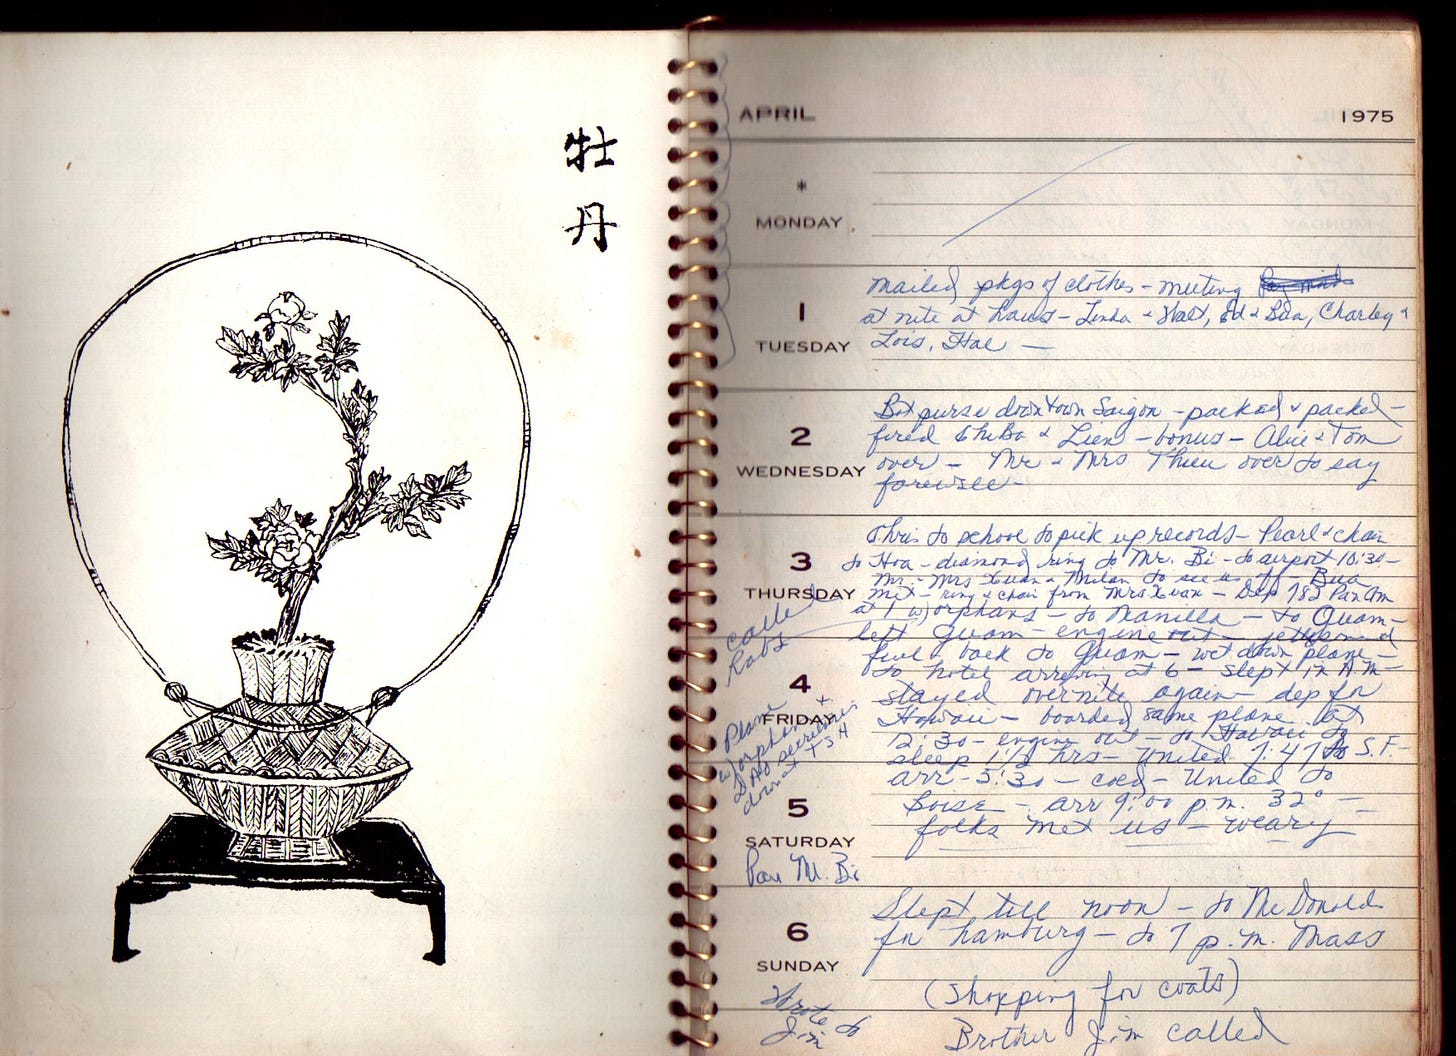 牡
丹
APRIL 1975
*
MONDAY
1
TUESDAY
mailed pkgs of clothes - meeting
at nite at haus - Linda & Walt, Ed & Bua, Charley &
Lois, Hal -
2
WEDNESDAY
Bot purse downtown Saigon - packed & packed -
fired & Lien - bonus - Alice & Tom
over - Mr & Mrs Thieu over to say
farewell -
3
THURSDAY
Chris to school to pick up records - Pearl & chair
to Hoa - diamond ring to Mr. Bi - to airport 10:30 -
Mr. & Mrs Xuan & Milan to see us off - Bua
met - ring & chair from Mrs Xuan - Dep 782 Pan Am
at 1 w/ orphans - to Manilla - to Guam -
left Guam - engine out - jettisoned
fuel - back to Guam - wet down plane -
to hotel arriving at 6 - slept in A.M -
called
Robs
4
FRIDAY
stayed overnite again - dep for
Hawaii - boarded same plane at
12:30 - engine out - to Hawaii to
sleep 1 1/2 hrs - United 1:47 to S.F. -
arr - 5:30 - cold - United to
Plane
w/ orphans +
DAO secretaries
down at TSN
5
SATURDAY
Boise - arr 9:00 p.m. 32° -
folks met us - weary
M. Bi
6
SUNDAY
Slept till noon - to McDonalds
for hamburg - to 7 p.m. Mass
(Shopping for coats)
Brother Jim called
Wrote to
Jim